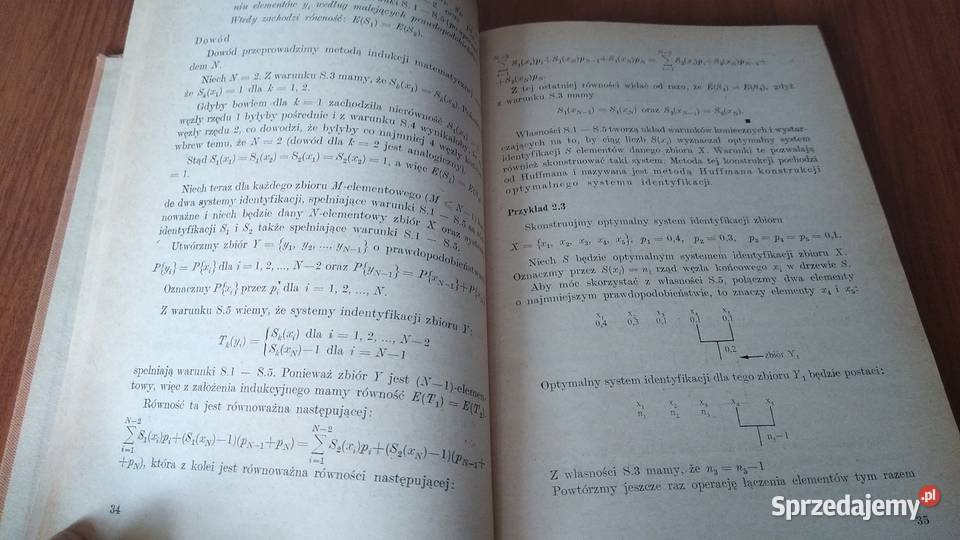 niu elementów yᵢ według malejących prawdopodobieństw.
Wtedy zachodzi równość: E(S₁) = E(S₂).
Dowód
Dowód przeprowadzimy metodą indukcji matematycznej
dem N.
Niech N = 2. Z warunku S.3 mamy, że Sₖ(x₁) = Sₖ(x₂).
że Sₖ(x₁) = 1 dla k = 1, 2.
Gdyby bowiem dla k = 1 zachodziła nierówność S₁(x₁)
węzły rzędu 1 byłyby pośrednie i z warunku S.4 wynikałoby
węzły rzędu 2, co dowodzi, że byłyby co najmniej 4 węzły
wbrew temu, że N = 2 (dowód dla k = 2 jest analogiczny).
Stąd S₁(x₁) = S₁(x₂) = S₂(x₁) = S₂(x₂) = 1, a więc E(S₁) = E(S₂)
= 1.
Niech teraz dla każdego zbioru M-elementowego (M < N−1)
de dwa systemy identyfikacji, spełniające warunki S.1 — S.5 są
noważne i niech będzie dany N-elementowy zbiór X oraz systemy
identyfikacji S₁ i S₂ także spełniające warunki S.1 — S.5.
Utwórzmy zbiór Y = {y₁, y₂, ..., y_{N−1}} o prawdopodobieństwach
P{yᵢ} = P{xᵢ} dla i = 1, 2, ..., N−2 oraz P{y_{N−1}} = P{x_{N−1}}+P{x_N}
Oznaczmy P{xᵢ} przez pᵢ dla i = 1, 2, ..., N.
Z warunku S.5 wiemy, że systemy identyfikacji zbioru Y:
Tₖ(yᵢ) = { Sₖ(xᵢ) dla i = 1, 2, ..., N−2
Sₖ(x_N)−1 dla i = N−1
spełniają warunki S.1 — S.5. Ponieważ zbiór Y jest (N−1)-elemen-
towy, więc z założenia indukcyjnego mamy równość E(T₁) = E(T₂).
Równość ta jest równoważna następującej:
∑_{i=1}^{N−2} S₁(xᵢ)pᵢ+(S₁(x_N)−1)(p_{N−1}+p_N) = ∑_{i=1}^{N−2} S₂(xᵢ)pᵢ+(S₂(x_N)−1)(p_{N−1}+
+p_N), która z kolei jest równoważna równości następującej:
34
∑_{i=1}^{N−2} S₁(xᵢ)pᵢ+S₁(x_N)p_{N−1}+S₁(x_N)p_N = ∑_{i=1}^{N−2} S₂(xᵢ)pᵢ+S₂(x_N)p_{N−1}+
+S₂(x_N)p_N.
Z tej ostatniej równości widać od razu, że E(S₁) = E(S₂), gdyż
z warunku S.3 mamy
S₁(x_{N−1}) = S₁(x_N) oraz S₂(x_{N−1}) = S₂(x_N).
Własności S.1 — S.5 tworzą układ warunków koniecznych i wystar-
czających na to, by ciąg liczb S(xᵢ) wyznaczał optymalny system
identyfikacji S elementów danego zbioru X. Warunki te pozwalają
również skonstruować taki system. Metoda tej konstrukcji pochodzi
od Huffmana i nazywana jest metodą Huffmana konstrukcji
optymalnego systemu identyfikacji.
Przykład 2.3
Skonstruujmy optymalny system identyfikacji zbioru
X = {x₁, x₂, x₃, x₄, x₅}; p₁ = 0,4, p₂ = 0,3, p₃ = p₄ = p₅ = 0,1.
Niech S będzie optymalnym systemem identyfikacji zbioru X.
Oznaczmy przez S(xᵢ) = nᵢ rząd węzła końcowego xᵢ w drzewie S.
Aby móc skorzystać z własności S.5, połączmy dwa elementy
o najmniejszym prawdopodobieństwie, to znaczy elementy x₄ i x₅:
x₁ x₂ x₃ x₄ x₅
0,4 0,3 0,1 0,1 0,1
0,2
zbiór Y₁
Optymalny system identyfikacji dla tego zbioru Y₁ będzie postaci:
x₁ x₂ x₃ x₄ x₅
n₁ n₂ n₃
n₅−1
Z własności S.3 mamy, że n₃ = n₅−1
Powtórzmy jeszcze raz operację łączenia elementów tym razem
35
Sprzedajemy.pl